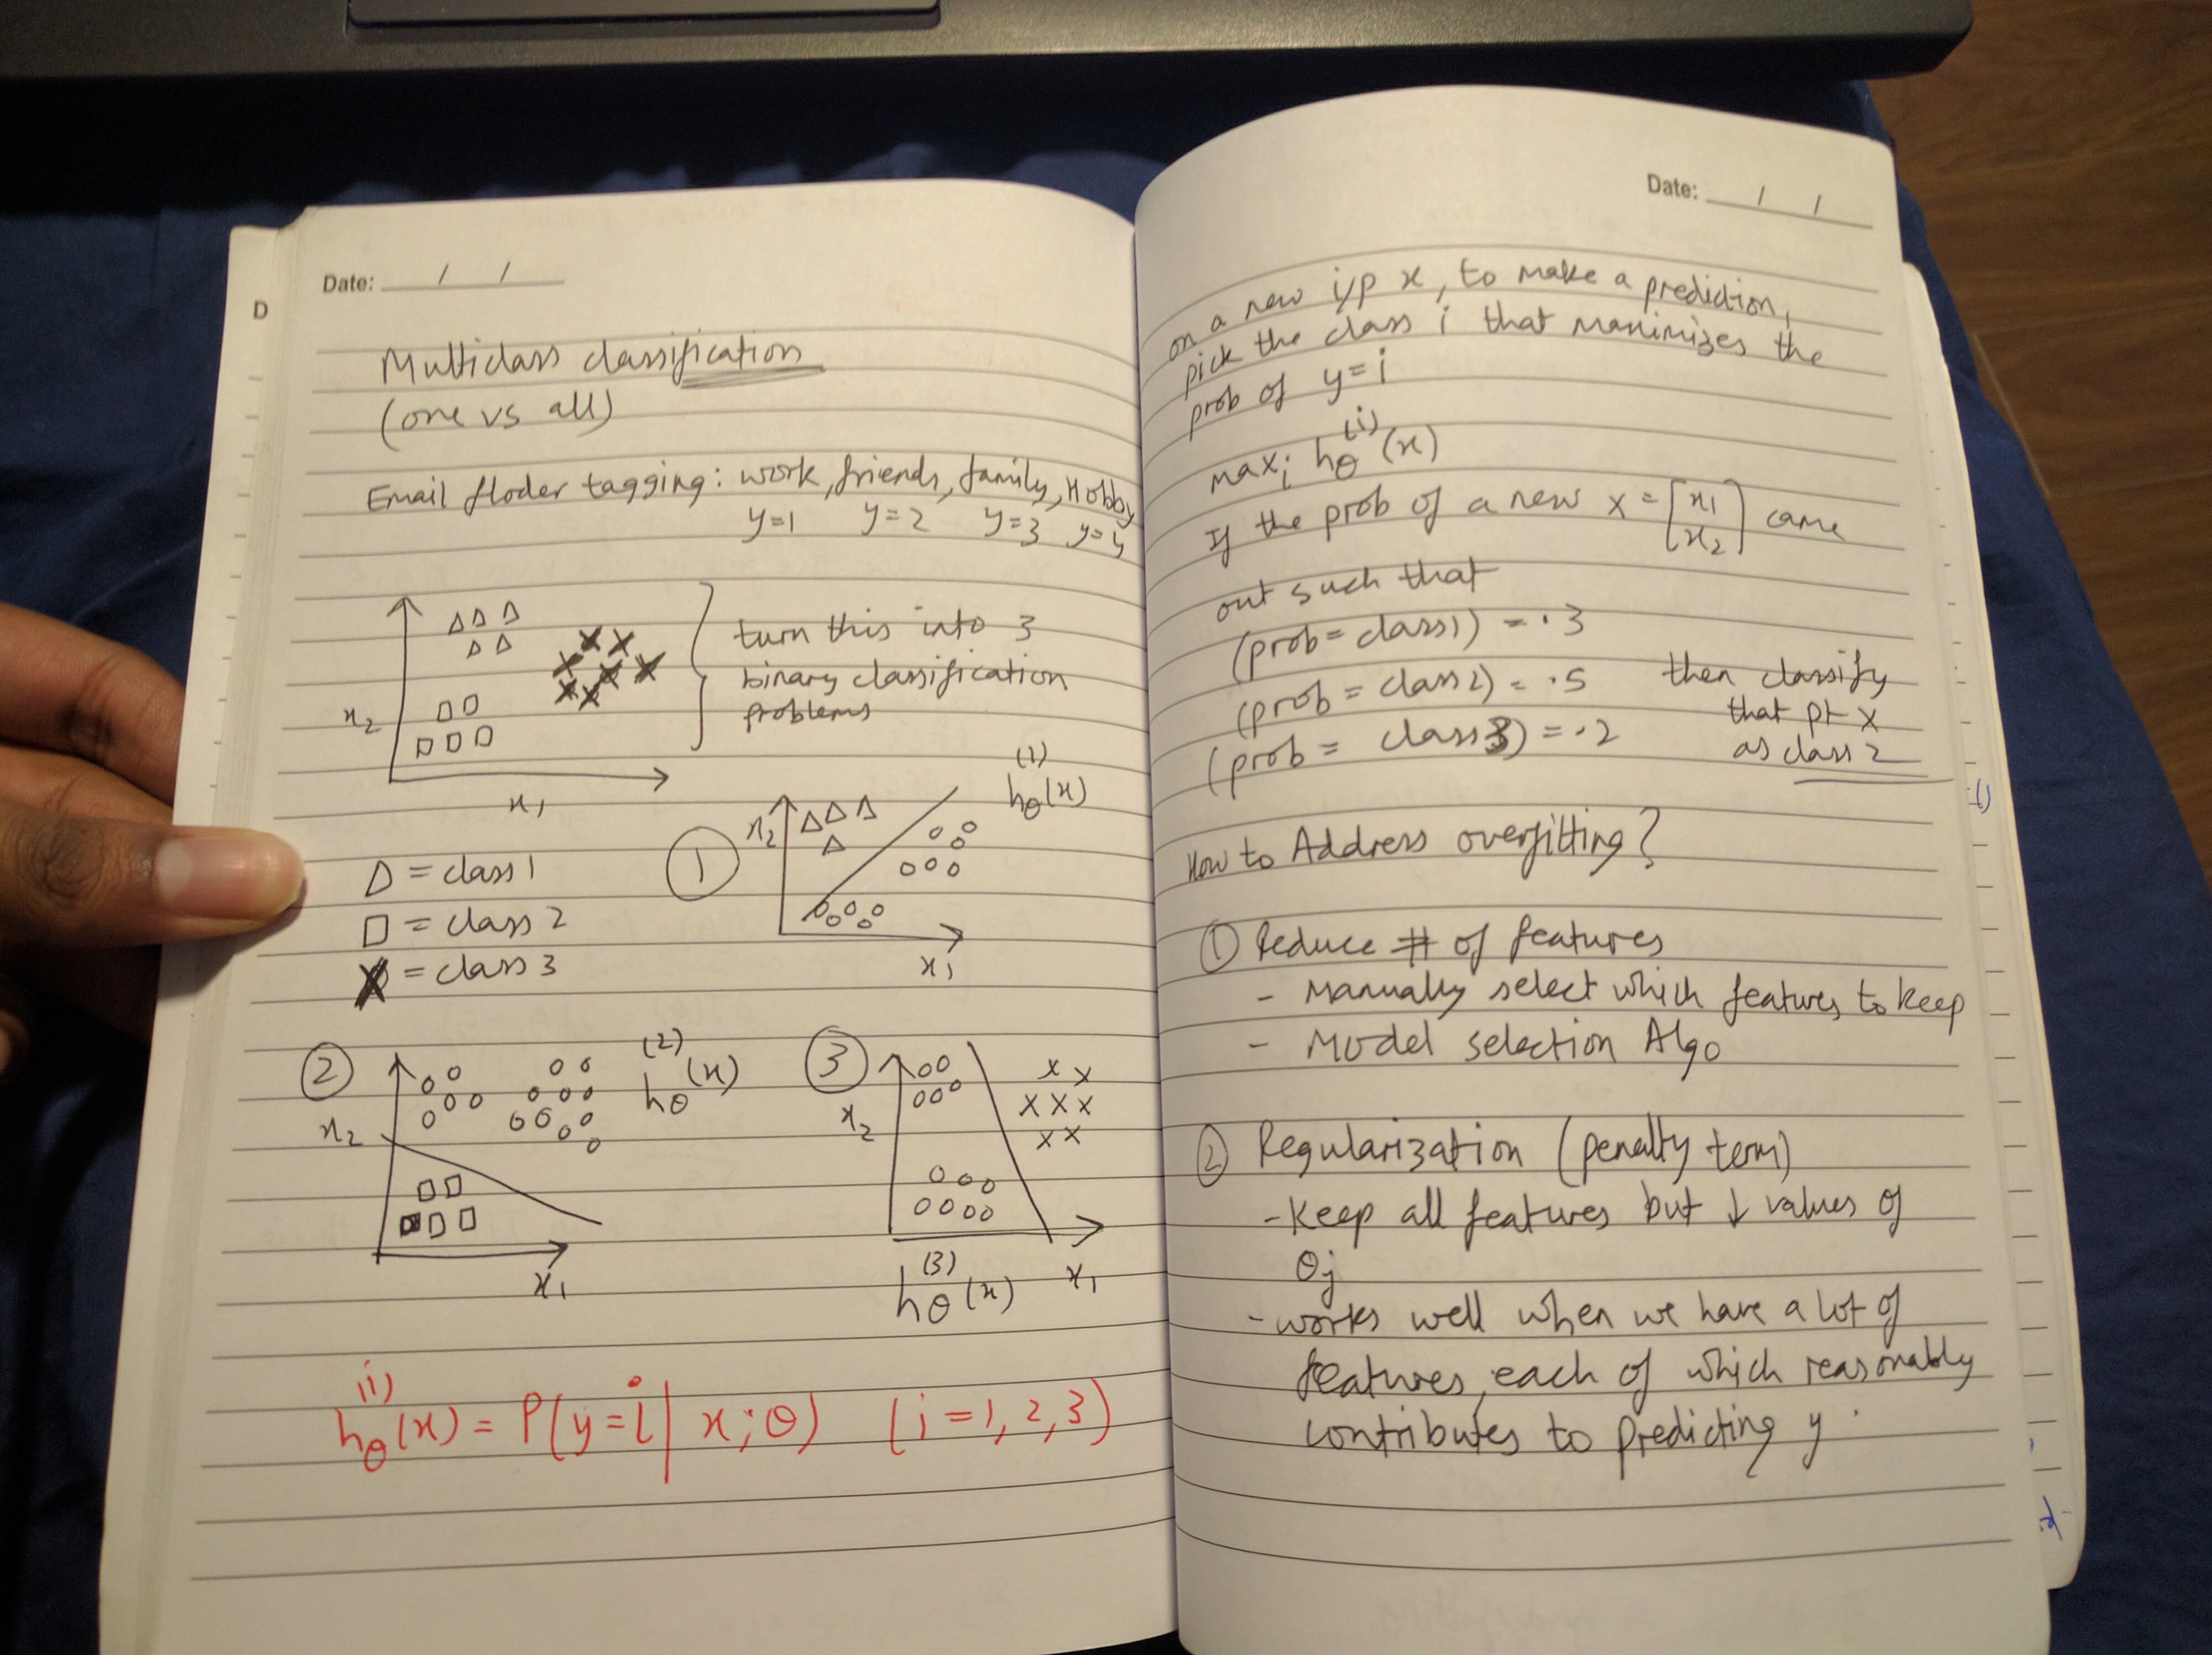 Date: / /
D
Multiclass classification
(one vs all)
Email floder tagging: work, friends, family, Hobby
y=1 y=2 y=3 y=4
turn this into 3
binary classification
problems
x2
x1
△ = class 1
□ = class 2
X = class 3
1
x2
x1
hθ(1)(x)
2
x2
x1
hθ(2)(x)
3
x2
x1
hθ(3)(x)
hθ(i)(x) = P(y=i | x;θ) (i=1,2,3)
Date: / /
on a new i/p x, to make a prediction,
pick the class i that maximizes the
prob of y=i
maxi hθ(i)(x)
If the prob of a new x = [x1 x2] came
out such that
(prob = class1) = .3
(prob = class2) = .5
(prob = class3) = .2
then classify
that pt x
as class 2
How to Address overfitting?
① Reduce # of features
- Manually select which features to keep
- Model selection Algo
② Regularization (penalty term)
- Keep all features but ↓ values of
θj
- works well when we have a lot of
features, each of which reasonably
contributes to predicting y.